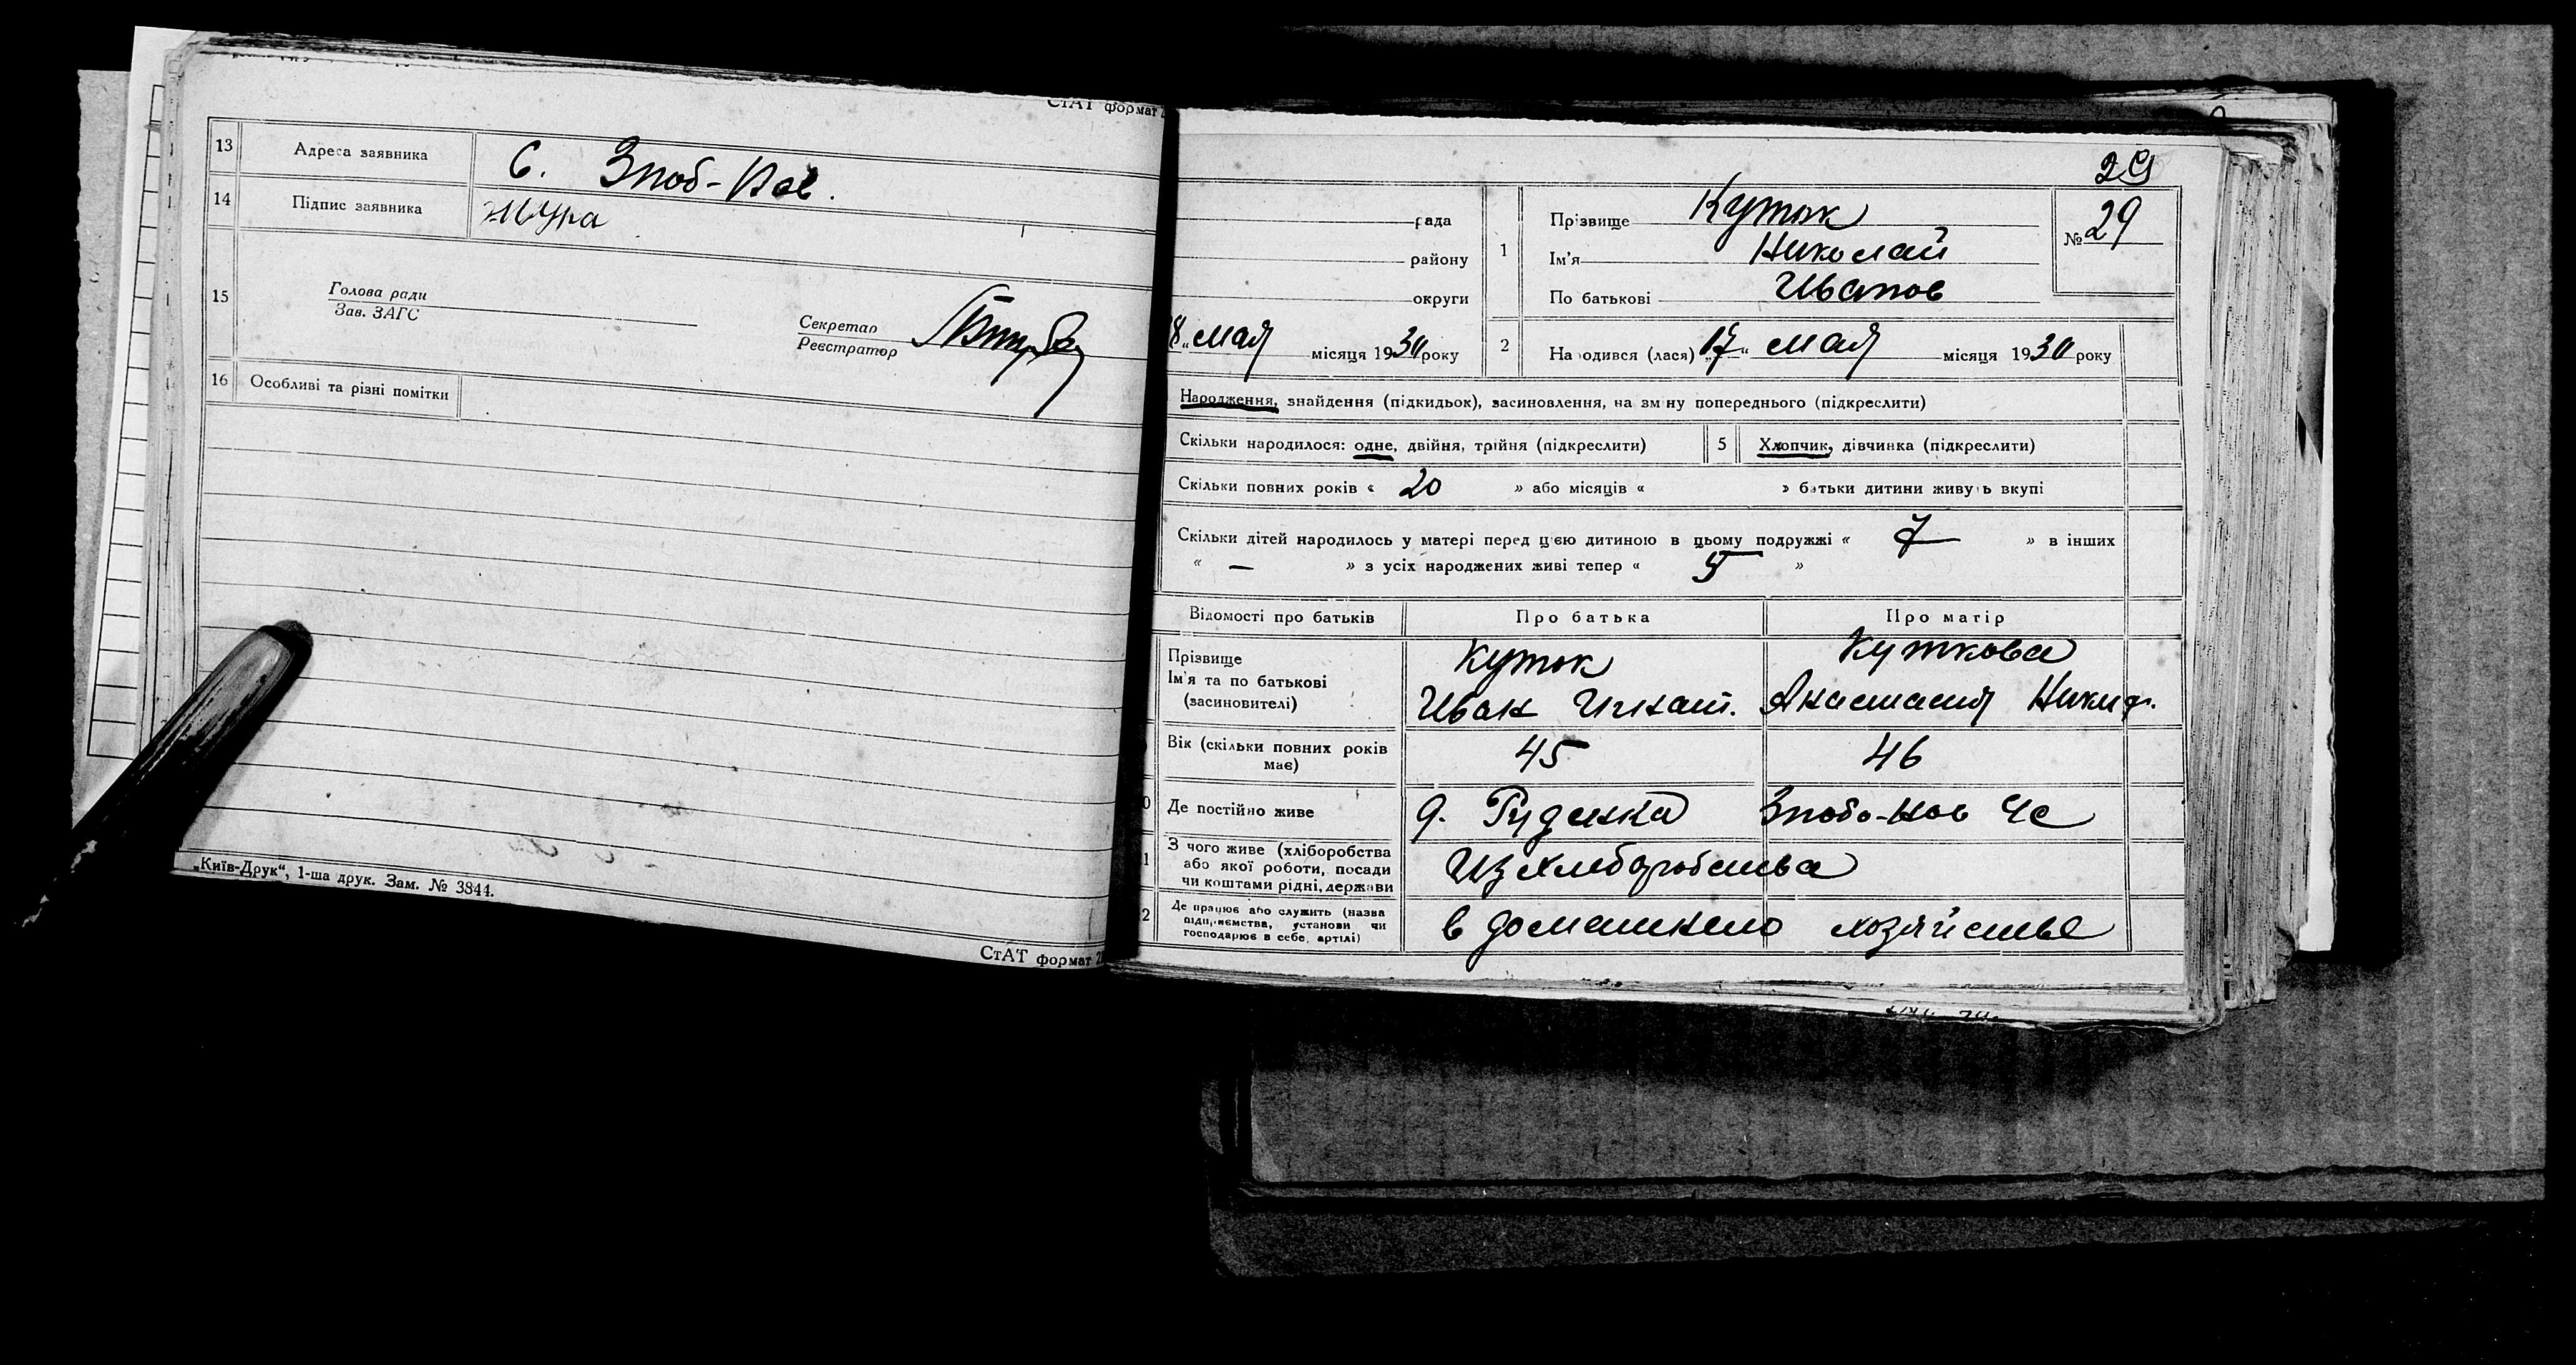 СтАТ формат
13 Адреса заявника С. Зноб-Нов.
14 Підпис заявника Жура
15 Голова ради
Зав. ЗАГС
Секретар
Реєстратор
16 Особливі та різні помітки
„Київ-Друк“, 1-ша друк. Зам. № 3844.
СтАТ формат
29
рада
району
округи
8 „ мая місяця 1930 року
1 Прізвище Куток
Ім'я Николай
По батькові Иванов
№ 29
2 Народився (лася) „17“ мая місяця 1930 року
Народження, знайдення (підкидьок), засиновлення, на зміну попереднього (підкреслити)
Скільки народилося: одне, двійня, трійня (підкреслити)
5 Хлопчик, дівчинка (підкреслити)
Скільки повних років « 20 » або місяців « » батьки дитини живуть вкупі
Скільки дітей народилось у матері перед цією дитиною в цьому подружжі « 7 » в інших
« — » з усіх народжених живі тепер « 5 »
Відомості про батьків Про батька Про матір
Прізвище Куток Куткова
Ім'я та по батькові
(засиновителі) Иван Игнат. Анастасия Никиф.
Вік (скільки повних років
має) 45 46
Де постійно живе д. Руденка Знобо-Нов Ч С
З чого живе (хліборобства
або якої роботи, посади
чи коштами рідні, держави
Из хлеборобства
2 Де працює або служить (назва
підприємства, установи чи
господарює в себе, артілі)
в домашнело хозяйстве